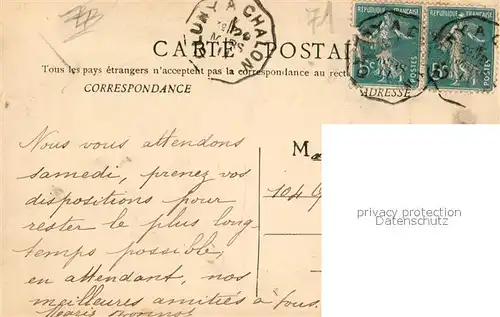 CLUNY A CHALON
71
CARTE POSTA
Tous les pays étrangers n'acceptent pas la correspondance au recto
CORRESPONDANCE
ADRESSE
REPUBLIQUE FRANCAISE
5c
POSTES
REPUBLIQUE FRANCAISE
5c
POSTES
Nous vous attendons
samedi, prenez vos
dispositions pour
rester le plus long-
temps possible,
en attendant, nos
meilleures amitiés à tous.
M
104
privacy protection
Datenschutz